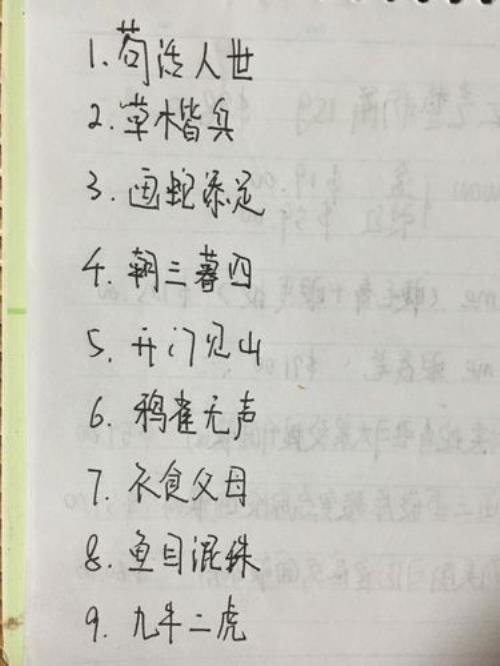 1. 苟活人世
2. 草楷兵
3. 画蛇添足
4. 朝三暮四
5. 开门见山
6. 鸦雀无声
7. 衣食父母
8. 鱼目混珠
9. 九牛二虎